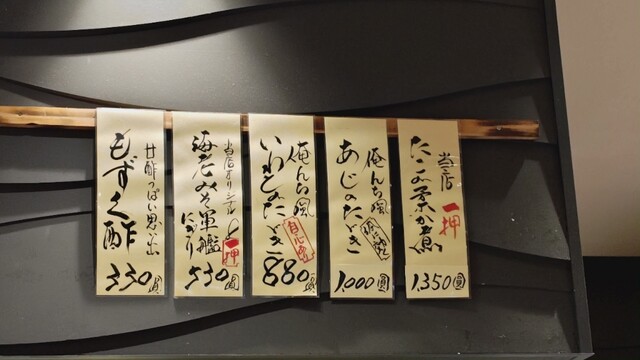 当店一押
たこの柔か煮
1,350圓
俺んち風
あじのたたき
1000圓
俺んち風
いわしのたたき
自信作
880圓
当店オリジナル
海老みそ軍艦
にぎり
一押
530圓
甘酢っぱい思い出
もずく酢
330圓